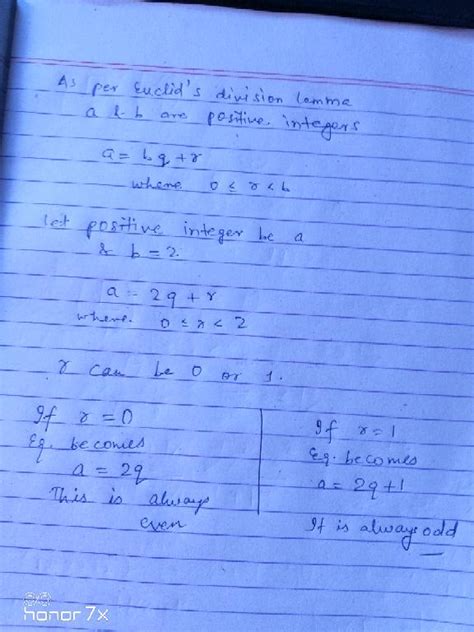 As per Euclid's division lamma
a & b are positive integers
a = bq + r
where 0 ≤ r < b
let positive integer be a
& b = 2.
a = 2q + r
where 0 ≤ r < 2
r can be 0 or 1.
If r = 0
Eq. becomes
a = 2q
This is always
even
If r = 1
Eq. becomes
a = 2q + 1
It is always odd
honor 7x